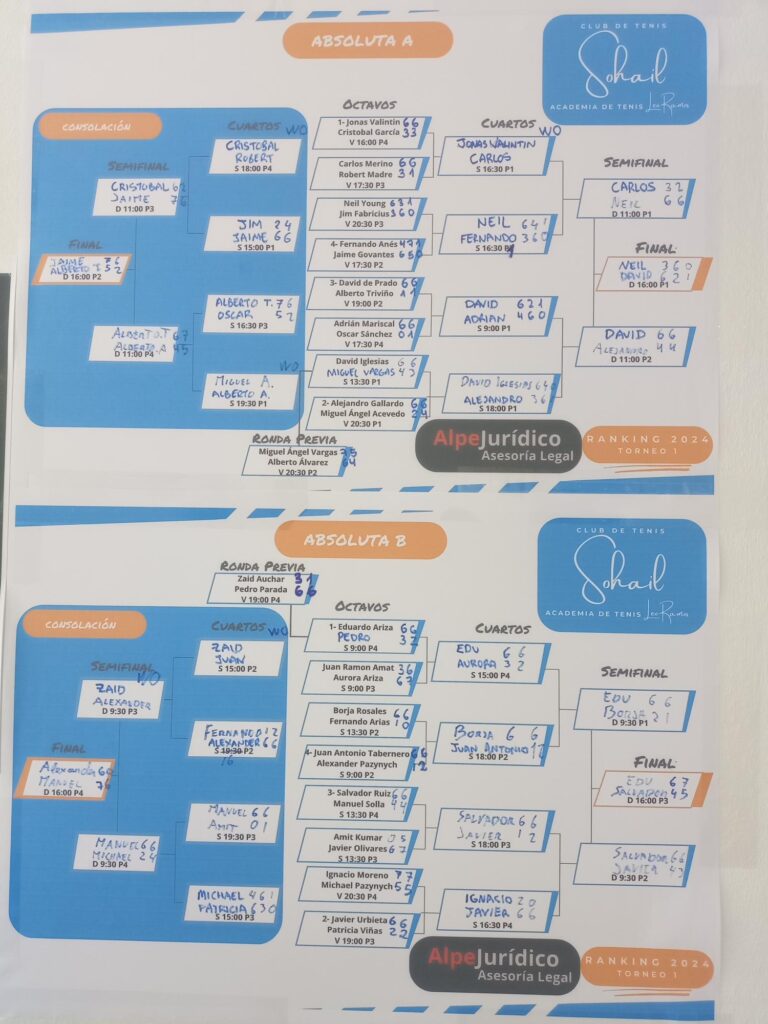 ABSOLUTA A
CLUB DE TENIS
Sohail
ACADEMIA DE TENIS Leo Ramos
CONSOLACIÓN
CUARTOS WO
CRISTOBAL
ROBERT
S 18:00 P4
SEMIFINAL
CRISTOBAL 62
JAIME 76
D 11:00 P3
JIM 24
JAIME 66
S 15:00 P1
FINAL
JAIME 76
ALBERTO T. 52
D 16:00 P2
ALBERTO T. 76
OSCAR 52
S 16:30 P3
ALBERTO T 67
ALBERTO A 45
D 11:00 P4
WO
MIGUEL A.
ALBERTO A.
S 19:30 P1
OCTAVOS
1- Jonas Valintin 66
Cristobal García 33
V 16:00 P4
Carlos Merino 66
Robert Madre 31
V 17:30 P3
Neil Young 631
Jim Fabricius 360
V 20:30 P3
4- Fernando Anés 471
Jaime Govantes 650
V 17:30 P2
3- David de Prado 66
Alberto Triviño 11
V 19:00 P2
Adrián Mariscal 66
Oscar Sánchez 01
V 17:30 P4
David Iglesias 66
MIGUEL VARGAS 43
S 13:30 P1
2- Alejandro Gallardo 66
Miguel Ángel Acevedo 24
V 20:30 P1
RONDA PREVIA
Miguel Ángel Vargas 75
Alberto Álvarez 64
V 20:30 P2
CUARTOS WO
JONAS VALINTIN
CARLOS
S 16:30 P1
NEIL 641
FERNANDO 360
S 16:30
DAVID 621
ADRIAN 460
S 9:00 P1
DAVID IGLESIAS 640
ALEJANDRO 36
S 18:00 P1
SEMIFINAL
CARLOS 32
NEIL 66
D 11:00 P1
FINAL
NEIL 360
DAVID 621
D 16:00 P1
DAVID 66
ALEJANDRO 44
D 11:00 P2
AlpeJurídico
Asesoría Legal
RANKING 2024
TORNEO 1
ABSOLUTA B
CLUB DE TENIS
Sohail
ACADEMIA DE TENIS Leo Ramos
RONDA PREVIA
Zaid Auchar 31
Pedro Parada 66
V 19:00 P4
CONSOLACIÓN
CUARTOS WO
ZAID
JUAN
S 15:00 P2
SEMIFINAL WO
ZAID
ALEXANDER
D 9:30 P3
FERNANDO 12
ALEXANDER 66
S 19:30 P2
16
FINAL
Alexander 60
MANUEL 76
D 16:00 P4
MANUEL 66
AMIT 01
S 19:30 P3
MANUEL 66
MICHAEL 24
D 9:30 P4
MICHAEL 461
PATRICIA 630
S 15:00 P3
OCTAVOS
1- Eduardo Ariza 66
PEDRO 32
S 9:00 P4
Juan Ramon Amat 36
Aurora Ariza 67
S 9:00 P3
Borja Rosales 66
Fernando Arias 10
S 13:30 P2
4- Juan Antonio Tabernero 66
Alexander Pazynych 12
S 9:00 P2
3- Salvador Ruiz 66
Manuel Solla 44
S 13:30 P4
Amit Kumar 05
Javier Olivares 67
S 13:30 P3
Ignacio Moreno 77
Michael Pazynych 55
V 20:30 P4
2- Javier Urbieta 66
Patricia Viñas 22
V 19:00 P3
CUARTOS
EDU 66
AURORA 32
S 15:00 P4
BORJA 66
JUAN ANTONIO 12
S 18:00 P2
SALVADOR 66
JAVIER 12
S 18:00 P3
IGNACIO 20
JAVIER 66
S 16:30 P4
SEMIFINAL
EDU 66
BORJA 21
D 9:30 P1
FINAL
EDU 67
SALVADOR 45
D 16:00 P3
SALVADOR 66
JAVIER 43
D 9:30 P2
AlpeJurídico
Asesoría Legal
RANKING 2024
TORNEO 1